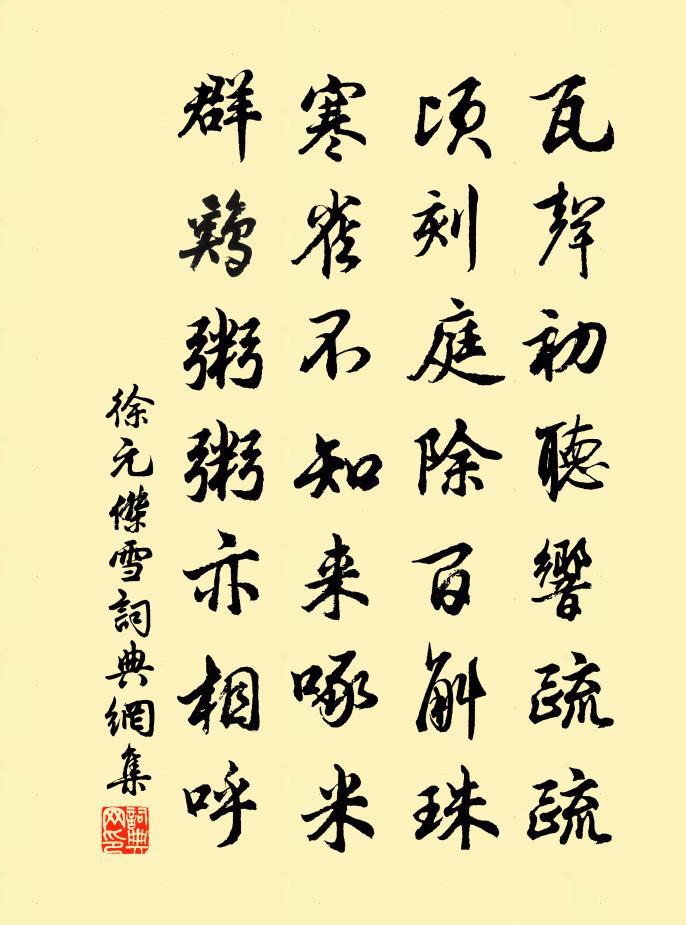 瓦聲初聽響疏疏
頃刻庭除百斛珠
寒雀不知来啄米
群鷄粥粥亦相呼
徐元傑雪詞典網集
詞典网印